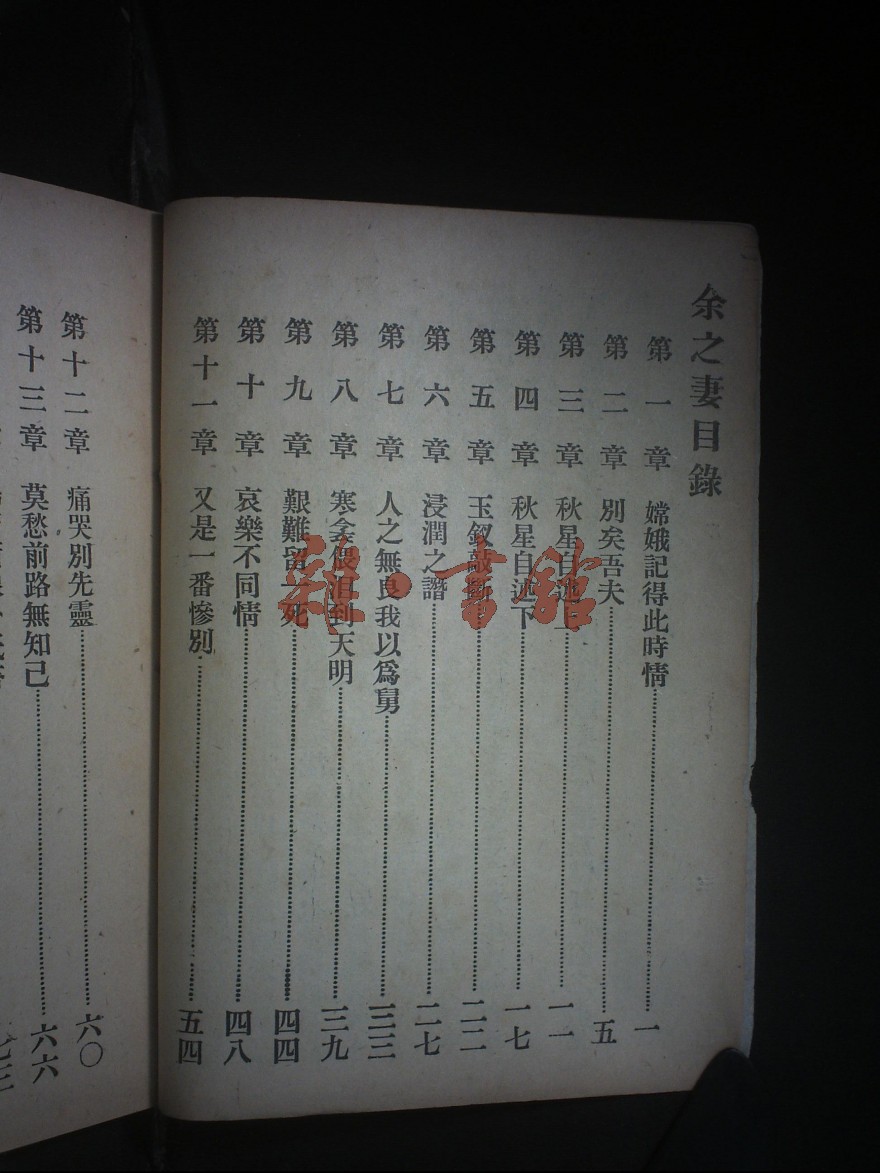 余之妻目錄
第一章 嫦娥記得此時情………一
第二章 別矣吾夫………五
第三章 秋星自述上………一一
第四章 秋星自述下………一七
第五章 玉釵敲斷………二二
第六章 浸潤之譖………二七
第七章 人之無良我以爲舅………三三
第八章 寒衾偎泪到天明………三九
第九章 艱難留一死………四四
第十章 哀樂不同情………四八
第十一章 又是一番慘別………五四
第十二章 痛哭別先靈………六〇
第十三章 莫愁前路無知己………六六
雜·書館